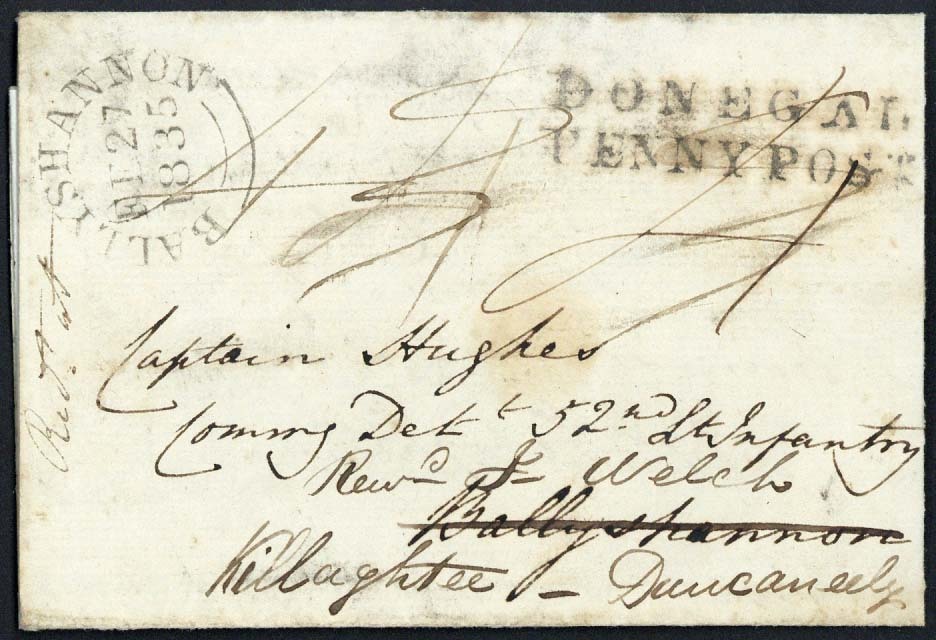 BALLYSHANNON
27
1835
DONEGAL
PENNY POST
Captain Hughes
Commg Dett 52nd Lt Infantry
Revd Js Welch
Ballyshannon
Killaghtee – Duncaneely